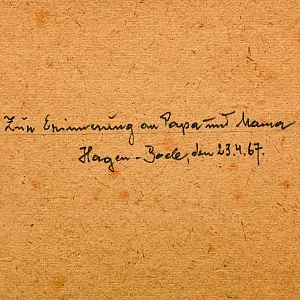 Zur Erinnerung an Papa und Mama
Hagen-Boele, den 23.4.67.